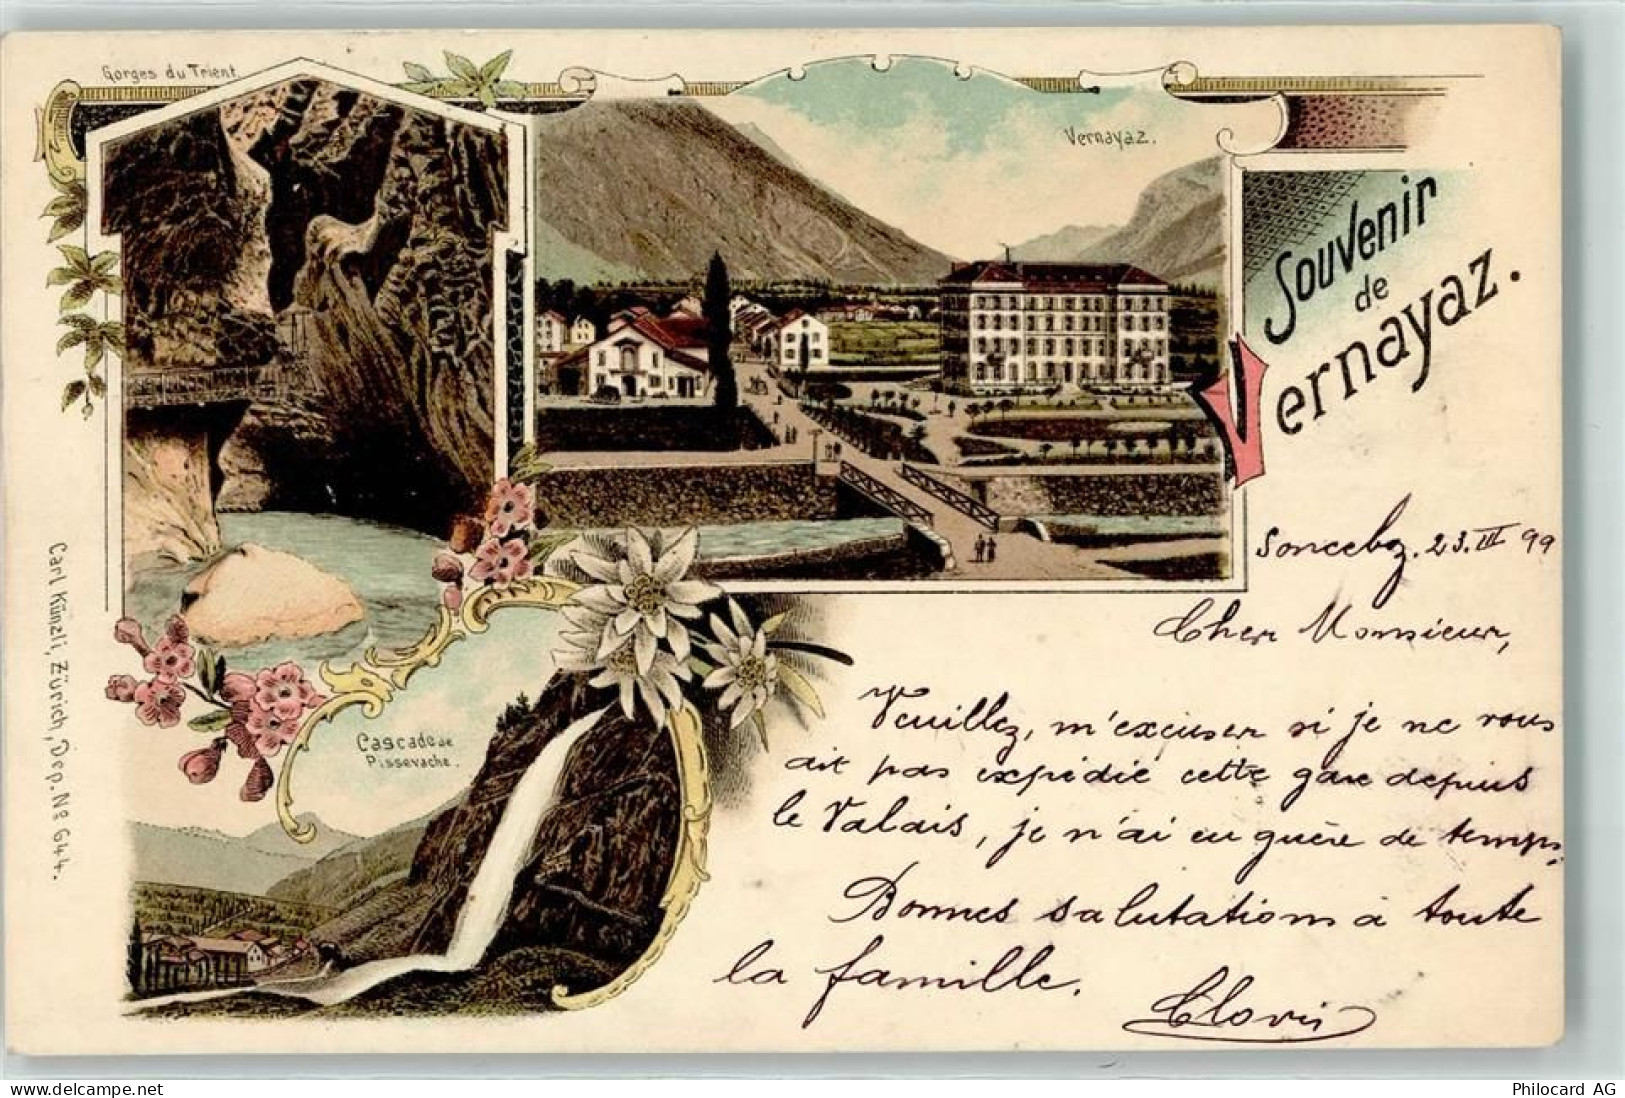 Gorges du Trient.
Vernayaz.
Souvenir
de
Vernayaz.
Cascade de
Pissevache.
Carl Künzli, Zürich, Dep. Nº 644.
Sonceboz. 23. III 99
Cher Monsieur,
Veuillez, m'excuser si je ne vous
ait pas expédié cette gare depuis
le Valais, je n'ai eu guère de temps.
Bonnes salutations à toute
la famille.
Clovis
delcampe.net
Philocard AG